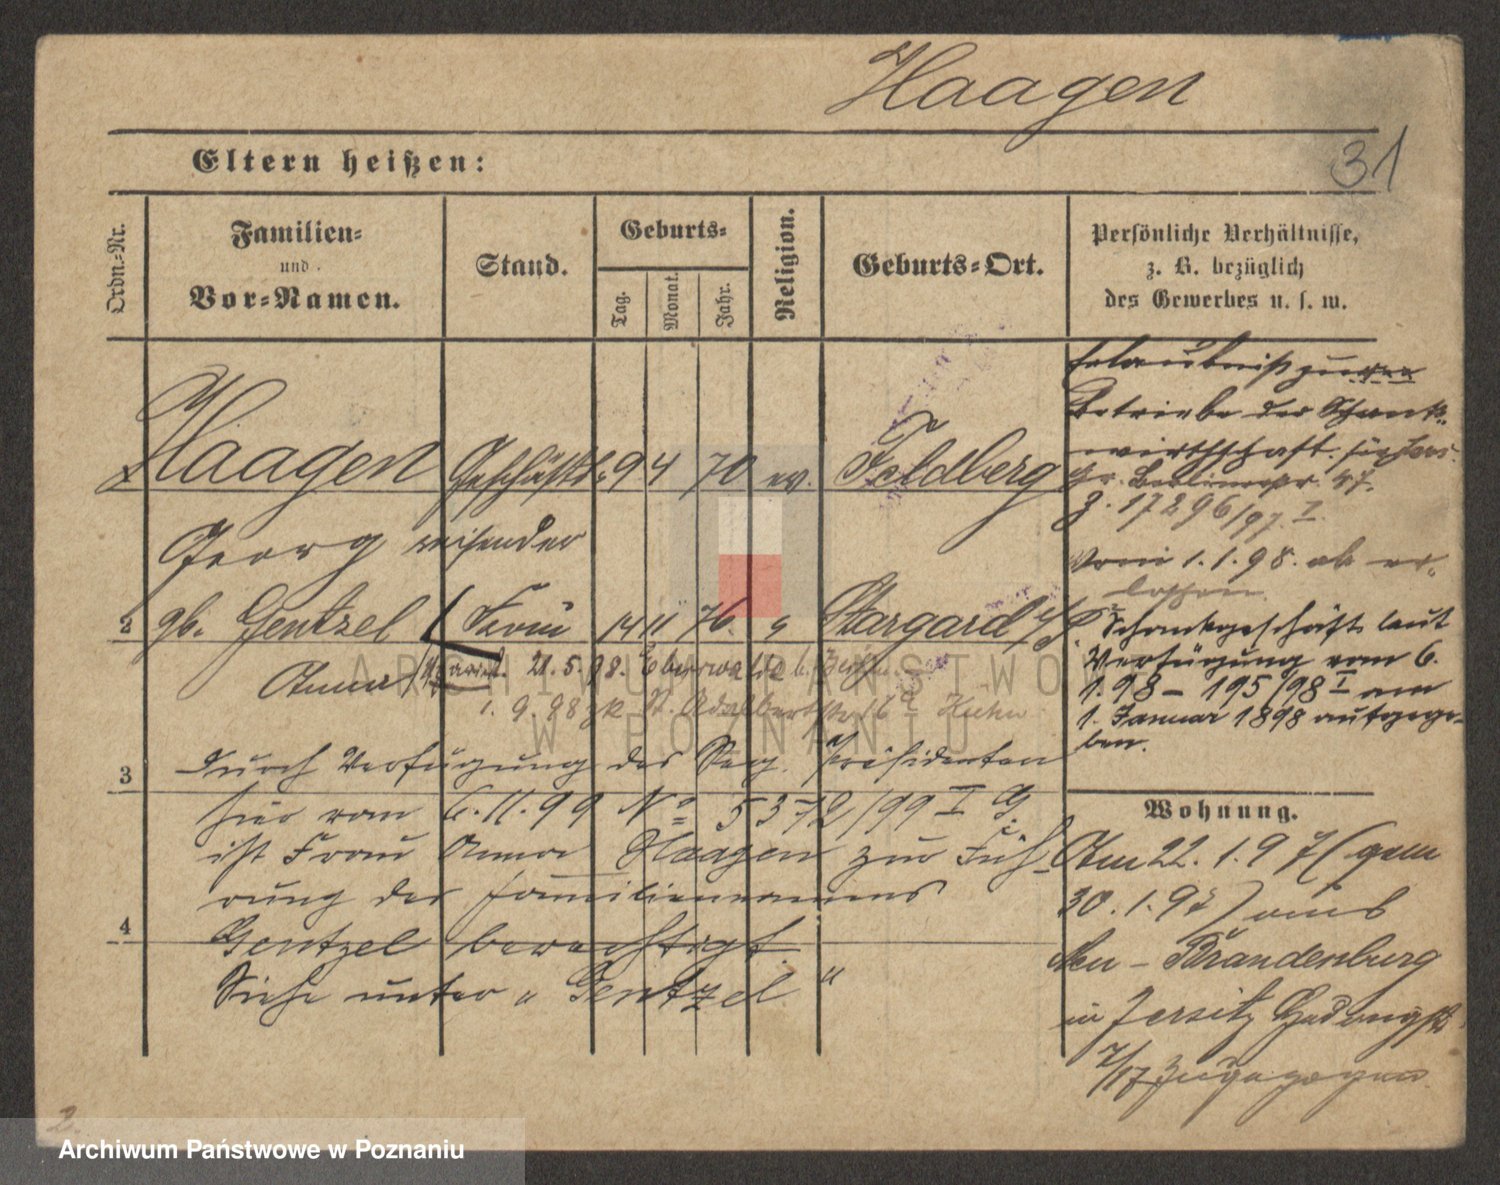 Haagen
31
Eltern heißen:
Ordn.-Nr.
Familien-
und
Vor-Namen.
Stand.
Geburts-
Tag.
Monat.
Jahr.
Religion.
Geburts-Ort.
Persönliche Verhältnisse,
z. B. bezüglich
des Gewerbes u. s. w.
Haagen Geschäfts- 9 4 70 ev. Feldberg
Georg reisender
2 gb. Gentzel Frau 14 11 76. " Stargard
Anna 21.5.98.
1. 9. 98 St. Adalbertstr 16a Kuhn
3 Durch Verfügung des Reg. Präsidenten
hier vom 6.11.99 No 5372/99 I G.
ist Frau Anna Haagen zur Füh-
rung des Familiennamens
4 Gentzel berechtigt.
Siehe unter „Gentzel"
Erlaubniß zum
Betriebe der Schank-
wirthschaft für
Gr. Berlinerstr. 47.
J. 17296/97. I.
Vom 1.1.98. ab er-
loschen.
Schankgeschäft laut
Verfügung vom 6.
1. 98 – 195/98 I am
1. Januar 1898 aufgege-
ben.
Wohnung.
Am 22. 1. 97 (gem
30. 1. 97) aus
Neu-Brandenburg
in Jersitz Hedwigstr
7/17 zugezogen
2.
ARCHIWUM PAŃSTWOWE
W POZNANIU
Archiwum Państwowe w Poznaniu